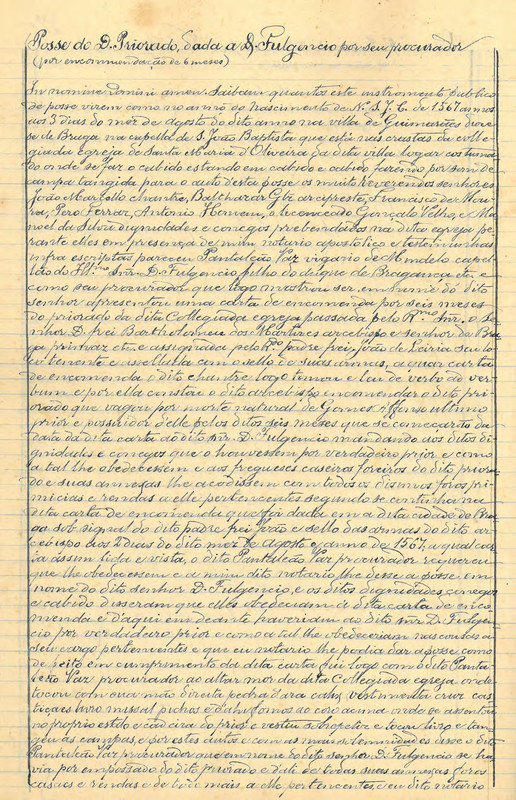 Posse do D. Priorado, dada a D. Fulgencio por seu procurador
(por encommendação de 6 meses)
In nomine Domini amen. Saibam quantos este instrumento publico
de posse virem como no anno do nascimento de N. S. J. C. de 1567 annos
aos 3 dias do mez de agosto do dito anno na villa de Guimarães dioce-
se de Braga na capella de S. João Baptista que está nas crastas da colle-
giada egreja de Santa Maria d'Oliveira da dita villa logar costuma-
do onde se faz o cabido estando em cabido e cabido fazendo por som de
campa tangida para o auto desta posse os muito reverendos senhores
João Martello chantre, Balthazar Glz arcipreste, Francisco de Mou-
ra, Pero Ferraz, Antonio Homem, o licenceado Gonçalo Velho, e Ma-
noel da Silva dignidades e conegos prebendados na dita egreja pe-
rante elles em presença de mim notario apostolico e testemunhas
infra escriptas pareceu Pantaleão Vaz vigario de capel-
lão do Ill.mo Snr. D. Fulgencio filho do duque de Bragança etc. e
como seu procurador que logo mostrou ser em nome do dito
senhor apresentou uma carta de encomenda por seis meses
do priorado da dita Collegiada egreja passada pelo R.mo Snr. o Se-
nhor D. frei Bartholomeu dos Martyres arcebispo e senhor de Bra-
ga primaz etc. e assignada pelo R.do padre frei João de Leiria seu lo-
cotenente e assellada com o sello de suas armas, a qual carta
de encomenda o dito chantre logo tomou e leu de verbo ad ver-
bum e por ella constou o dito arcebispo encomendar o dito pri-
orado que vagou por morte natural de Gomes Affonso ultimo
prior e possuidor delle pelos ditos seis meses que se começarão da
data da dita carta ao dito snr. D. Fulgencio mandando aos ditos di-
gnidades e conegos que o houvessem por verdadeiro prior e como
a tal lhe obedecessem e aos freguezes caseiros foreiros do dito priora-
do e suas annexas lhe acodissem com todos os dizimos foros pri-
micias e rendas a elle pertencentes segundo se continha na
dita carta de encomenda que foi dada em a dita cidade de Bra-
ga sob signal do dito padre frei João e sello das armas do dito ar-
cebispo aos 2 dias do dito mez de agosto e anno de 1567, a qual car-
ta assim lida e vista, o dito Pantaleão Vaz procurador requereu
que lhe obedecessem e a mim dito notario lhe desse a posse em
nome do dito senhor D. Fulgencio, e os ditos dignidades, conegos
e cabido disseram que elles obedeciam á dita carta de enco-
menda e d'aqui em deante haveriam ao dito snr D. Fulgen-
cio por verdadeiro prior e como a tal lhe obedeceriam nas cousas a
seu cargo pertencentes e que eu notario lhe podia dar a posse como
de feito em cumprimento da dita carta fui logo com o dito Panta-
leão Vaz procurador ao altar mor da dita Collegiada egreja onde
tocou com sua mão direita pedra d'ara calix vestimenta cruz cas-
tiçaes livro missal e d'ahi fomos ao coro acima onde se assentou
no proprio estalo e cadeira do prior e vestiu e tocou livro e tan-
geu as campas, e por estes autos e com as mais solemnidades disse o dito
Pantaleão Vaz procurador que em nome do dito senhor D. Fulgencio se ha-
via por empossado do dito priorado e dali de todas suas annexas foros
casaes e rendas e de todo mais a elle pertencentes, e eu dito notario